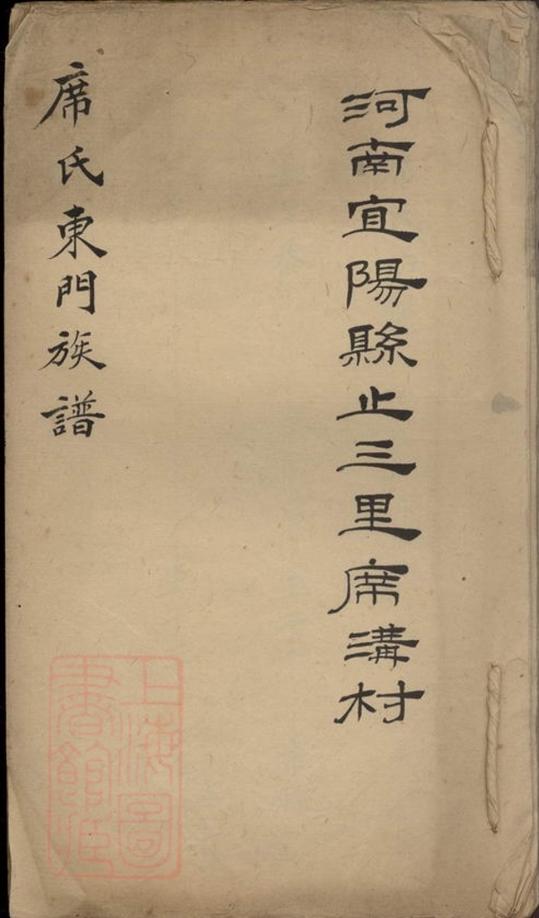 河南宜陽縣止三里席溝村
席氏東門族譜
上海圖
書館藏